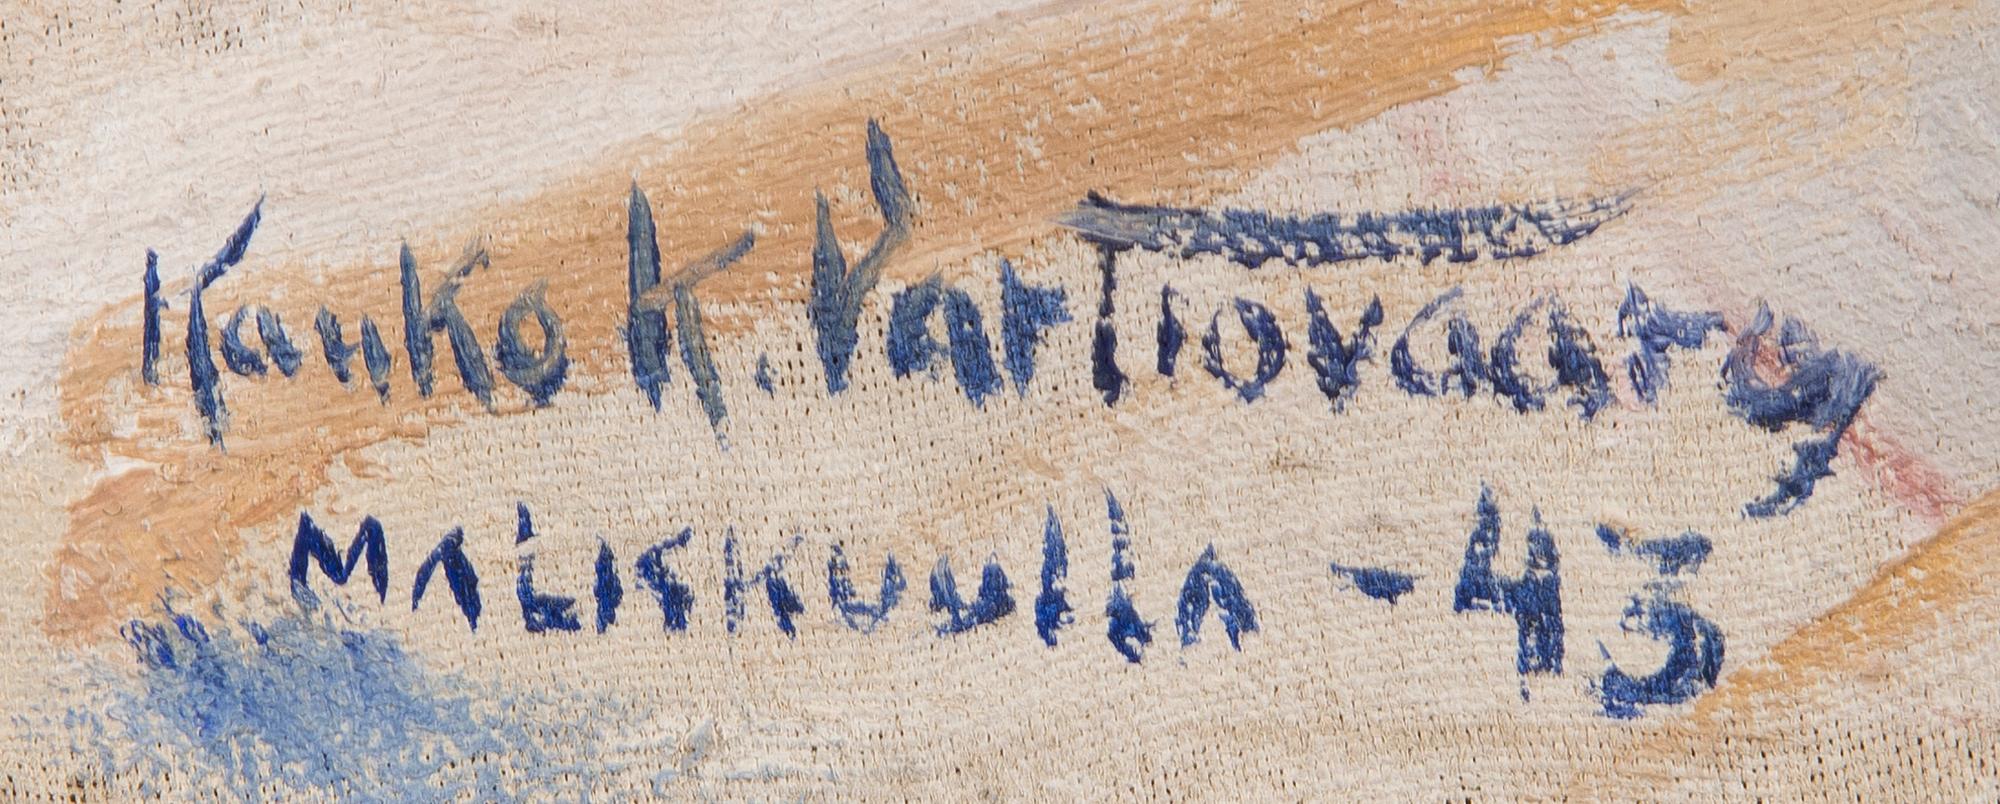 Kauko K. Vartiovaara
Maliskuulla -43